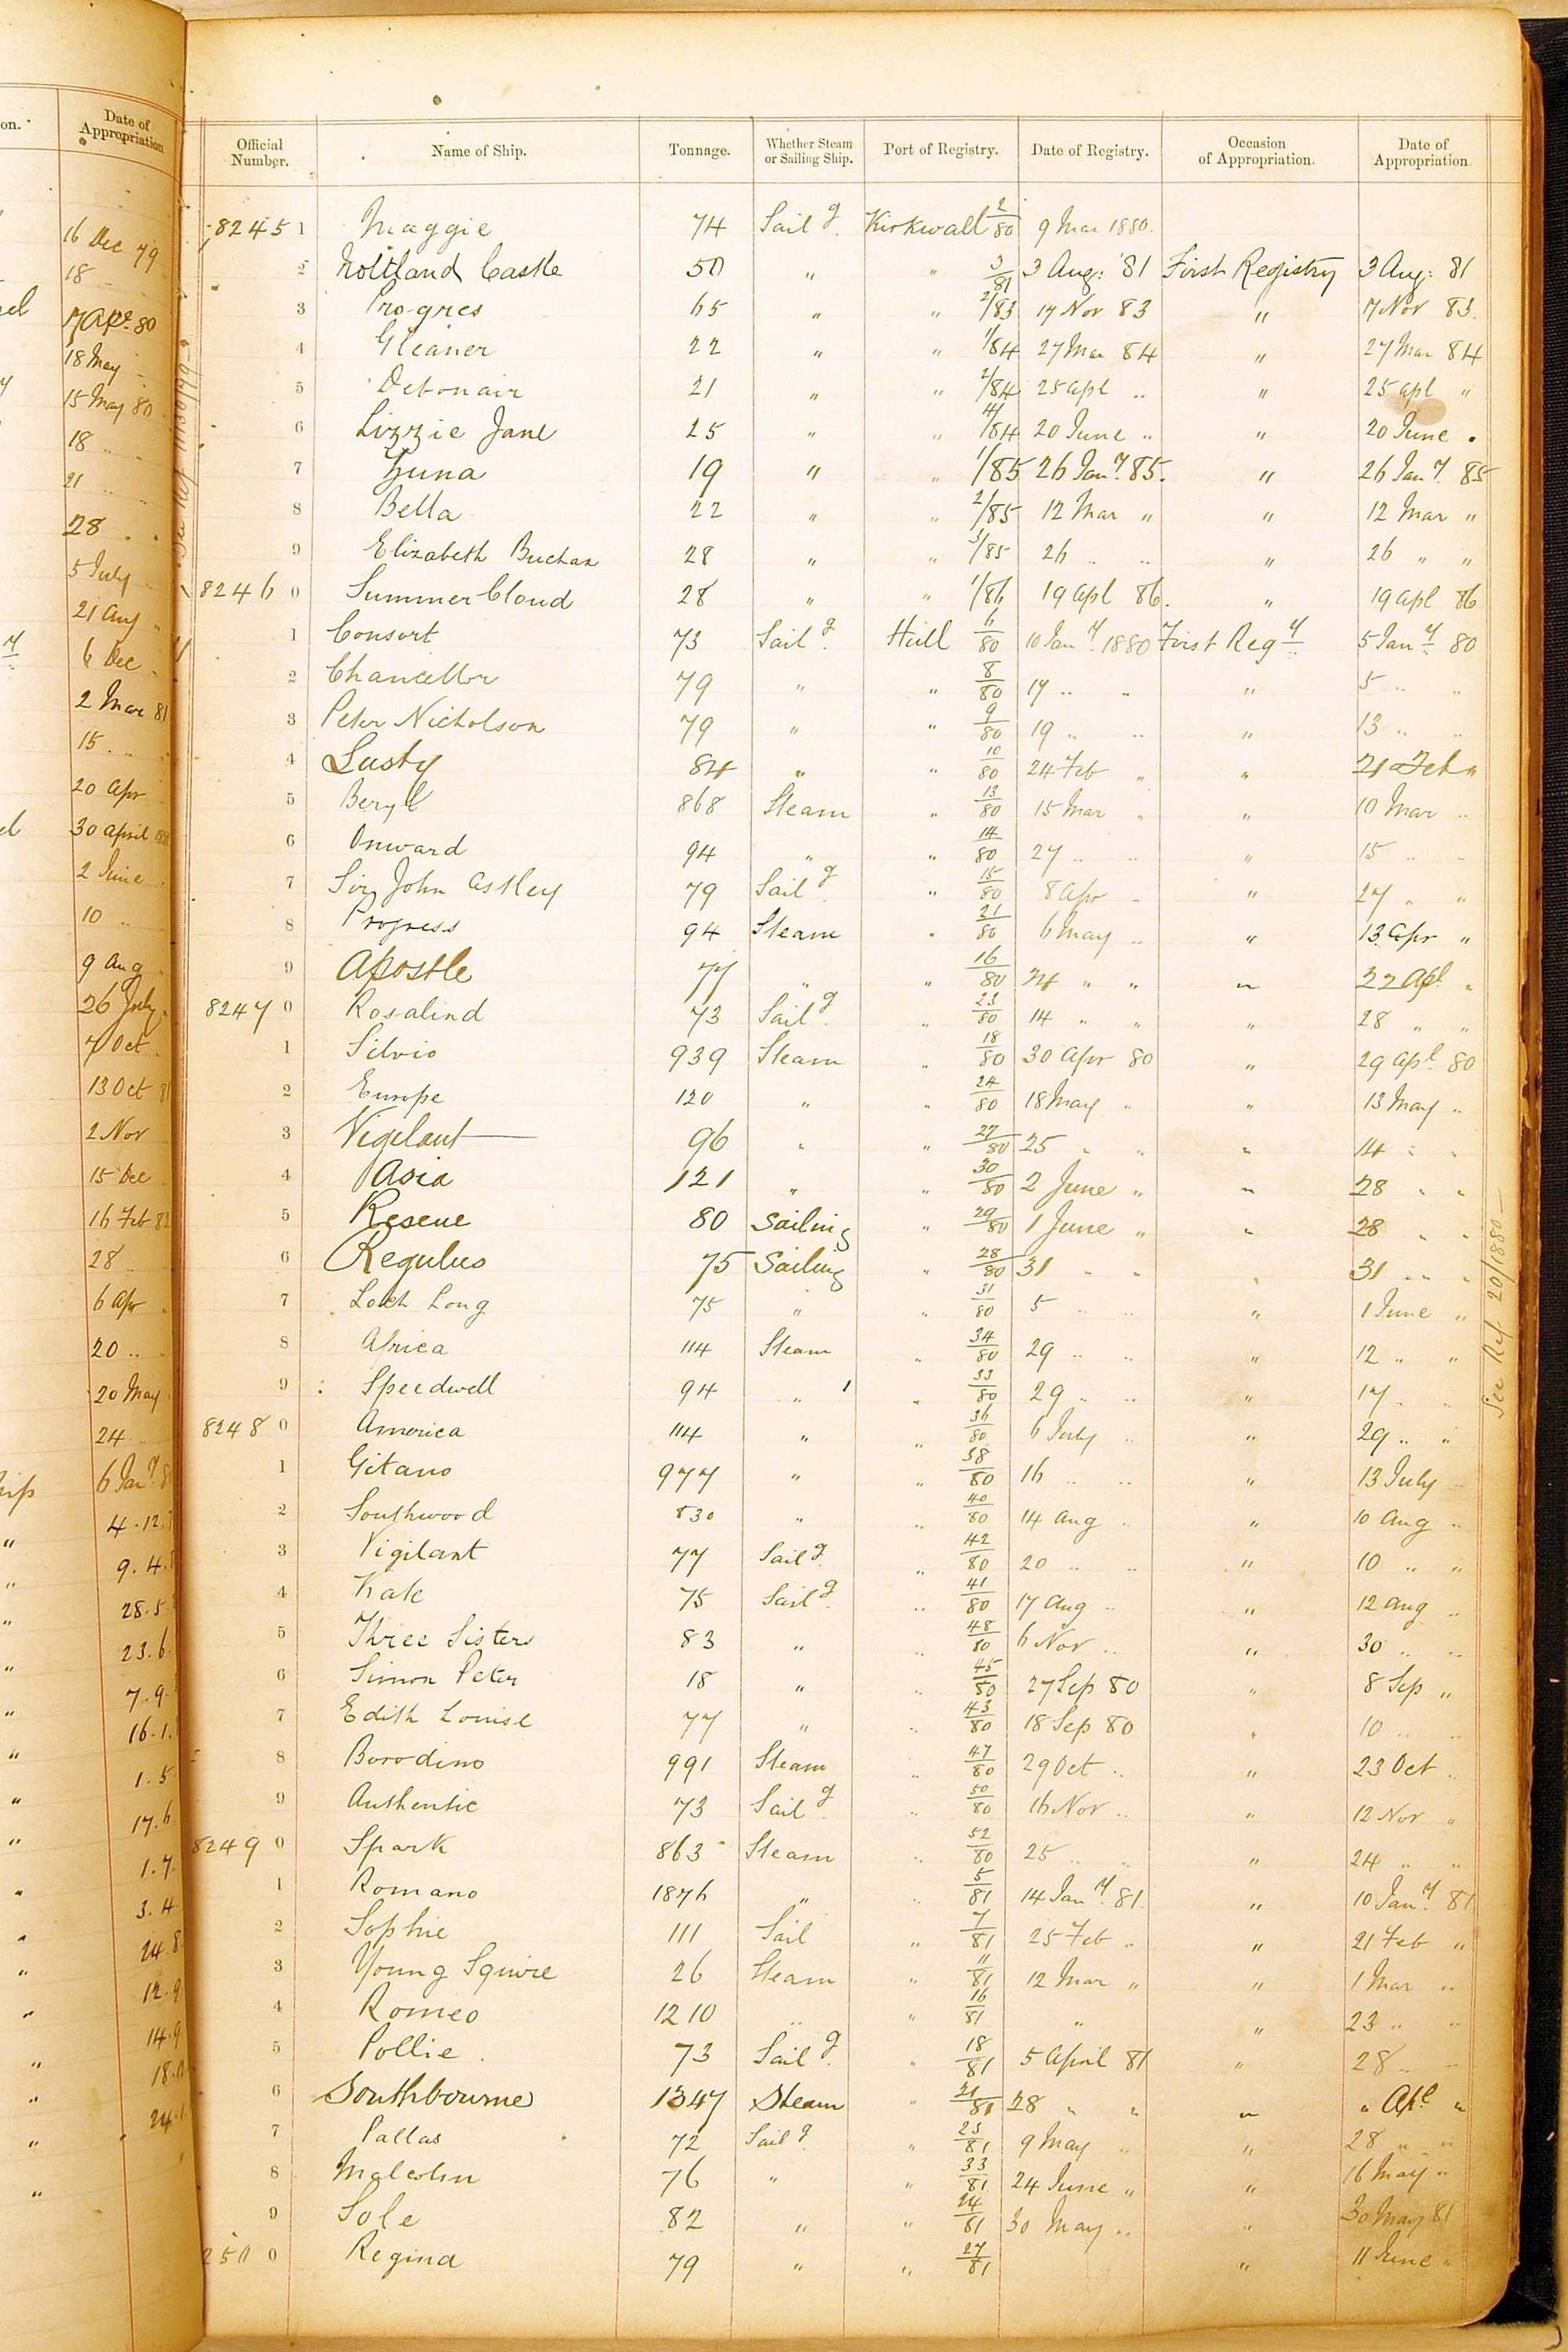 on.
Date of Appropriation
16 Dec 79
18
7 Ape 80
18 May
15 May 80
18 "
21
28
5 July
21 Aug
6 Dec
2 Mar 81
15
20 Apr
30 April
2 June
10 "
9 Aug
26 July
7 Oct
13 Oct 81
2 Nov
15 Dec
16 Feb 82
28
6 Apr
20 "
20 May
24
6 Jany
4.12.
9.4.
28.5
23.6
7.9
16.1.
1.5
17.6
1.7.
3.4
24.8
12.9
14.9
18.
24.
Official Number. Name of Ship. Tonnage. Whether Steam or Sailing Ship. Port of Registry. Date of Registry. Occasion of Appropriation. Date of Appropriation
82451 Maggie 74 Sailg. Kirkwall 2/80 9 Mar 1880.
2 Noltland Castle 50 " " 3/81 3 Aug: '81 First Registry 3 Aug: 81
3 Progres 65 " " 2/83 17 Nov 83 " 17 Nov 83.
4 Gleaner 22 " " 1/84 27 Mar 84 " 27 Mar 84
5 Debonair 21 " " 2/84 25 Apl " " 25 Apl "
6 Lizzie Jane 25 " " 4/84 20 June " " 20 June "
7 Luna 19 " " 1/85 26 Jany. 85. " 26 Jany. 85
8 Bella 22 " " 2/85 12 Mar " " 12 Mar "
9 Elizabeth Buchan 28 " " 3/85 26 " " " 26 " "
82460 Summer Cloud 28 " " 1/86 19 Apl 86. " 19 Apl 86
1 Consort 73 Sailg. Hull 6/80 10 Jany. 1880 First Regy 5 Jany 80
2 Chancellor 79 " " 8/80 17 " " " 5 " "
3 Peter Nicholson 79 " " 9/80 19 " " " 13 " "
4 Lusty 84 " " 10/80 24 Feb " " 21 Feb "
5 Beryl 868 Steam " 13/80 15 Mar " " 10 Mar "
6 Onward 94 " " 14/80 27 " " " 15 " "
7 Sir John Astley 79 Sailg. " 15/80 8 Apr " " 27 " "
8 Progress 94 Steam " 21/80 6 May " " 13 Apr "
9 Apostle 77 " " 16/80 " " " 22 Apl "
82470 Rosalind 73 Sailg. " 23/80 14 " " " 28 " "
1 Silvio 939 Steam " 18/80 30 Apr 80 " 29 Apl. 80
2 Europe 120 " " 24/80 18 May " " 13 May "
3 Vigilant 96 " " 27/80 25 " " " 14 " "
4 Asia 121 " " 30/80 2 June " " 28 " "
5 Rescue 80 Sailing " 29/80 1 June " " 28 " "
6 Regulus 75 Sailing " 28/80 31 " " " 31 " "
7 Loch Long 75 " " 31/80 5 " " " 1 June "
8 Africa 114 Steam " 34/80 29 " " " 12 " "
9 Speedwell 94 " " 33/80 29 " " " 17 " "
82480 America 114 " " 36/80 6 July " " 29 " "
1 Gitano 977 " " 38/80 16 " " " 13 July "
2 Southwood 830 " " 40/80 14 Aug " " 10 Aug "
3 Vigilant 77 Sailg. " 42/80 20 " " " 10 " "
4 Kate 75 Sailg. " 41/80 17 Aug " " 12 Aug "
5 Three Sisters 83 " " 48/80 6 Nov " " 30 " "
6 Simon Peter 18 " " 45/80 27 Sep 80 " 8 Sep "
7 Edith Louise 77 " " 43/80 18 Sep 80 " 10 " "
8 Borodino 991 Steam " 47/80 29 Oct " " 23 Oct "
9 Authentic 73 Sailg. " 50/80 16 Nov " " 12 Nov "
82490 Spark 863 Steam " 52/80 25 " " " 24 " "
1 Romano 1876 " " 5/81 14 Jany. 81. " 10 Jany. 81
2 Sophie 111 Sail " 7/81 25 Feb " " 21 Feb "
3 Young Squire 26 Steam " 11/81 12 Mar " " 1 Mar "
4 Romeo 1210 " " 16/81 " " 23 " "
5 Pollie. 73 Sailg. " 18/81 5 April 81 " 28 " "
6 Southbourne 1347 Steam " 21/81 28 " " " " Apl "
7 Pallas 72 Sailg " 25/81 9 May " " 28 " "
8 Malcolm 76 " " 33/81 24 June " " 16 May "
9 Sole 82 " " 24/81 30 May " " 30 May 81
2500 Regina 79 " " 27/81 " 11 June "
See Ref 20/1880